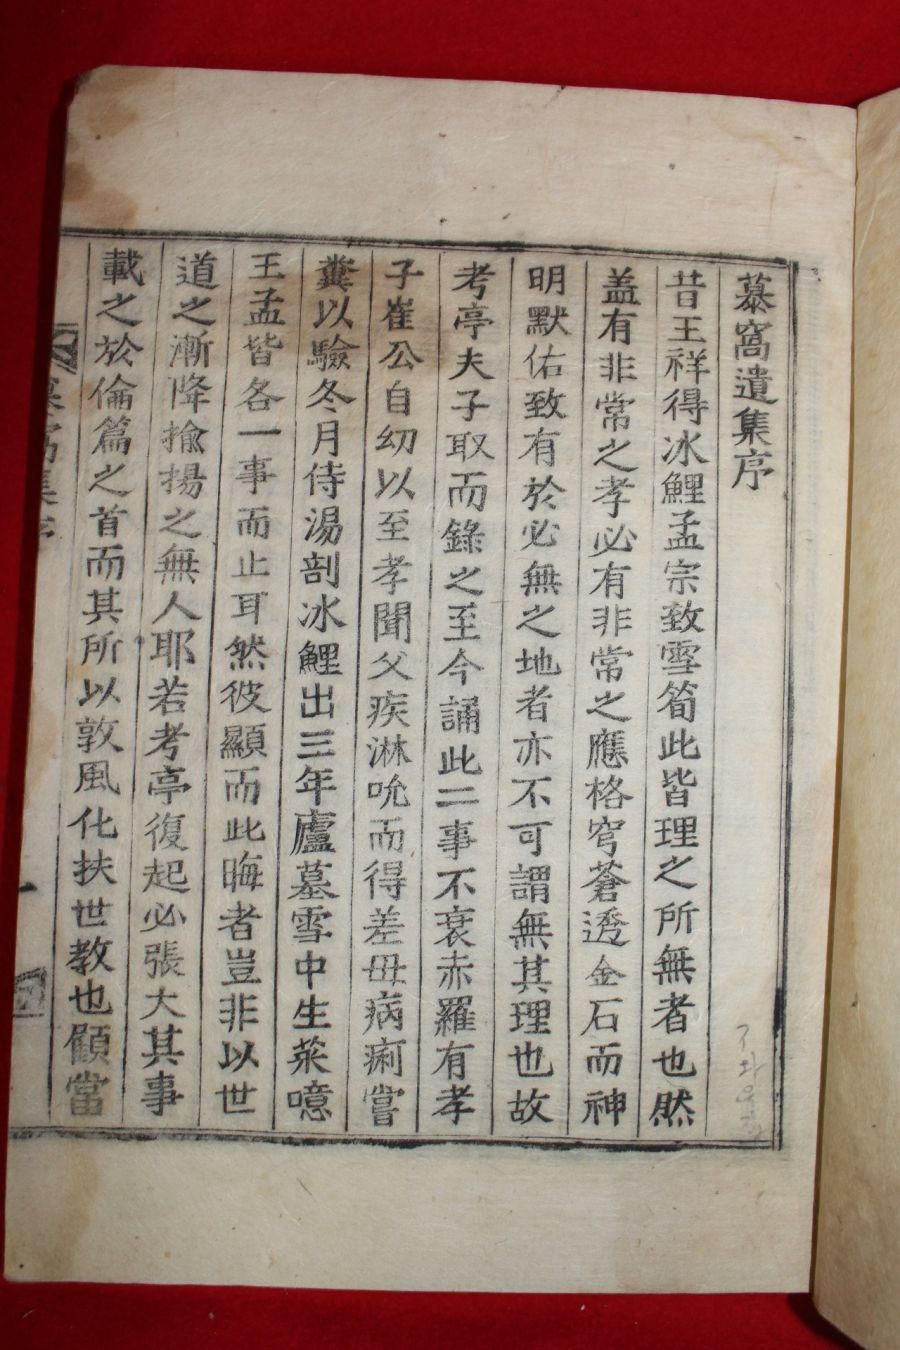 慕窩遺集序
昔王祥得冰鯉孟宗致雪筍此皆理之所無者也然
盖有非常之孝必有非常之應格穹蒼透金石而神
明默佑致有於必無之地者亦不可謂無其理也故
考亭夫子取而錄之至今誦此二事不衰赤羅有孝
子崔公自幼以至孝聞父疾淋吮而得差母病痢嘗
糞以驗冬月侍湯剖冰鯉出三年廬墓雪中生菜噫
王孟皆各一事而止耳然彼顯而此晦者豈非以世
道之漸降揄揚之無人耶若考亭復起必張大其事
載之於倫篇之首而其所以敦風化扶世教也顧當